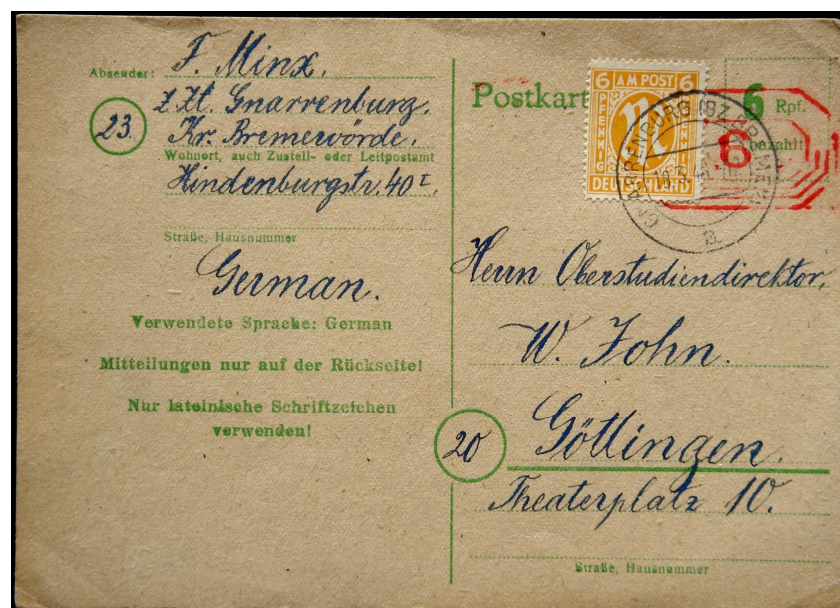 Absender: F. Minx.
23. z. Zt. Gnarrenburg.
Kr. Bremervörde.
Wohnort, auch Zustell- oder Leitpostamt
Hindenburgstr. 40 I.
Straße, Hausnummer
German.
Verwendete Sprache: German
Mitteilungen nur auf der Rückseite!
Nur lateinische Schriftzeichen
verwenden!
Postkart
6 AM POST 6
PFENNIG PFENNIG
DEUTSCHLAND
6 Rpf.
bezahlt
6
GNARRENBURG
a
Herrn Oberstudiendirektor,
W. John.
20 Göttingen.
Theaterplatz 10.
Straße, Hausnummer